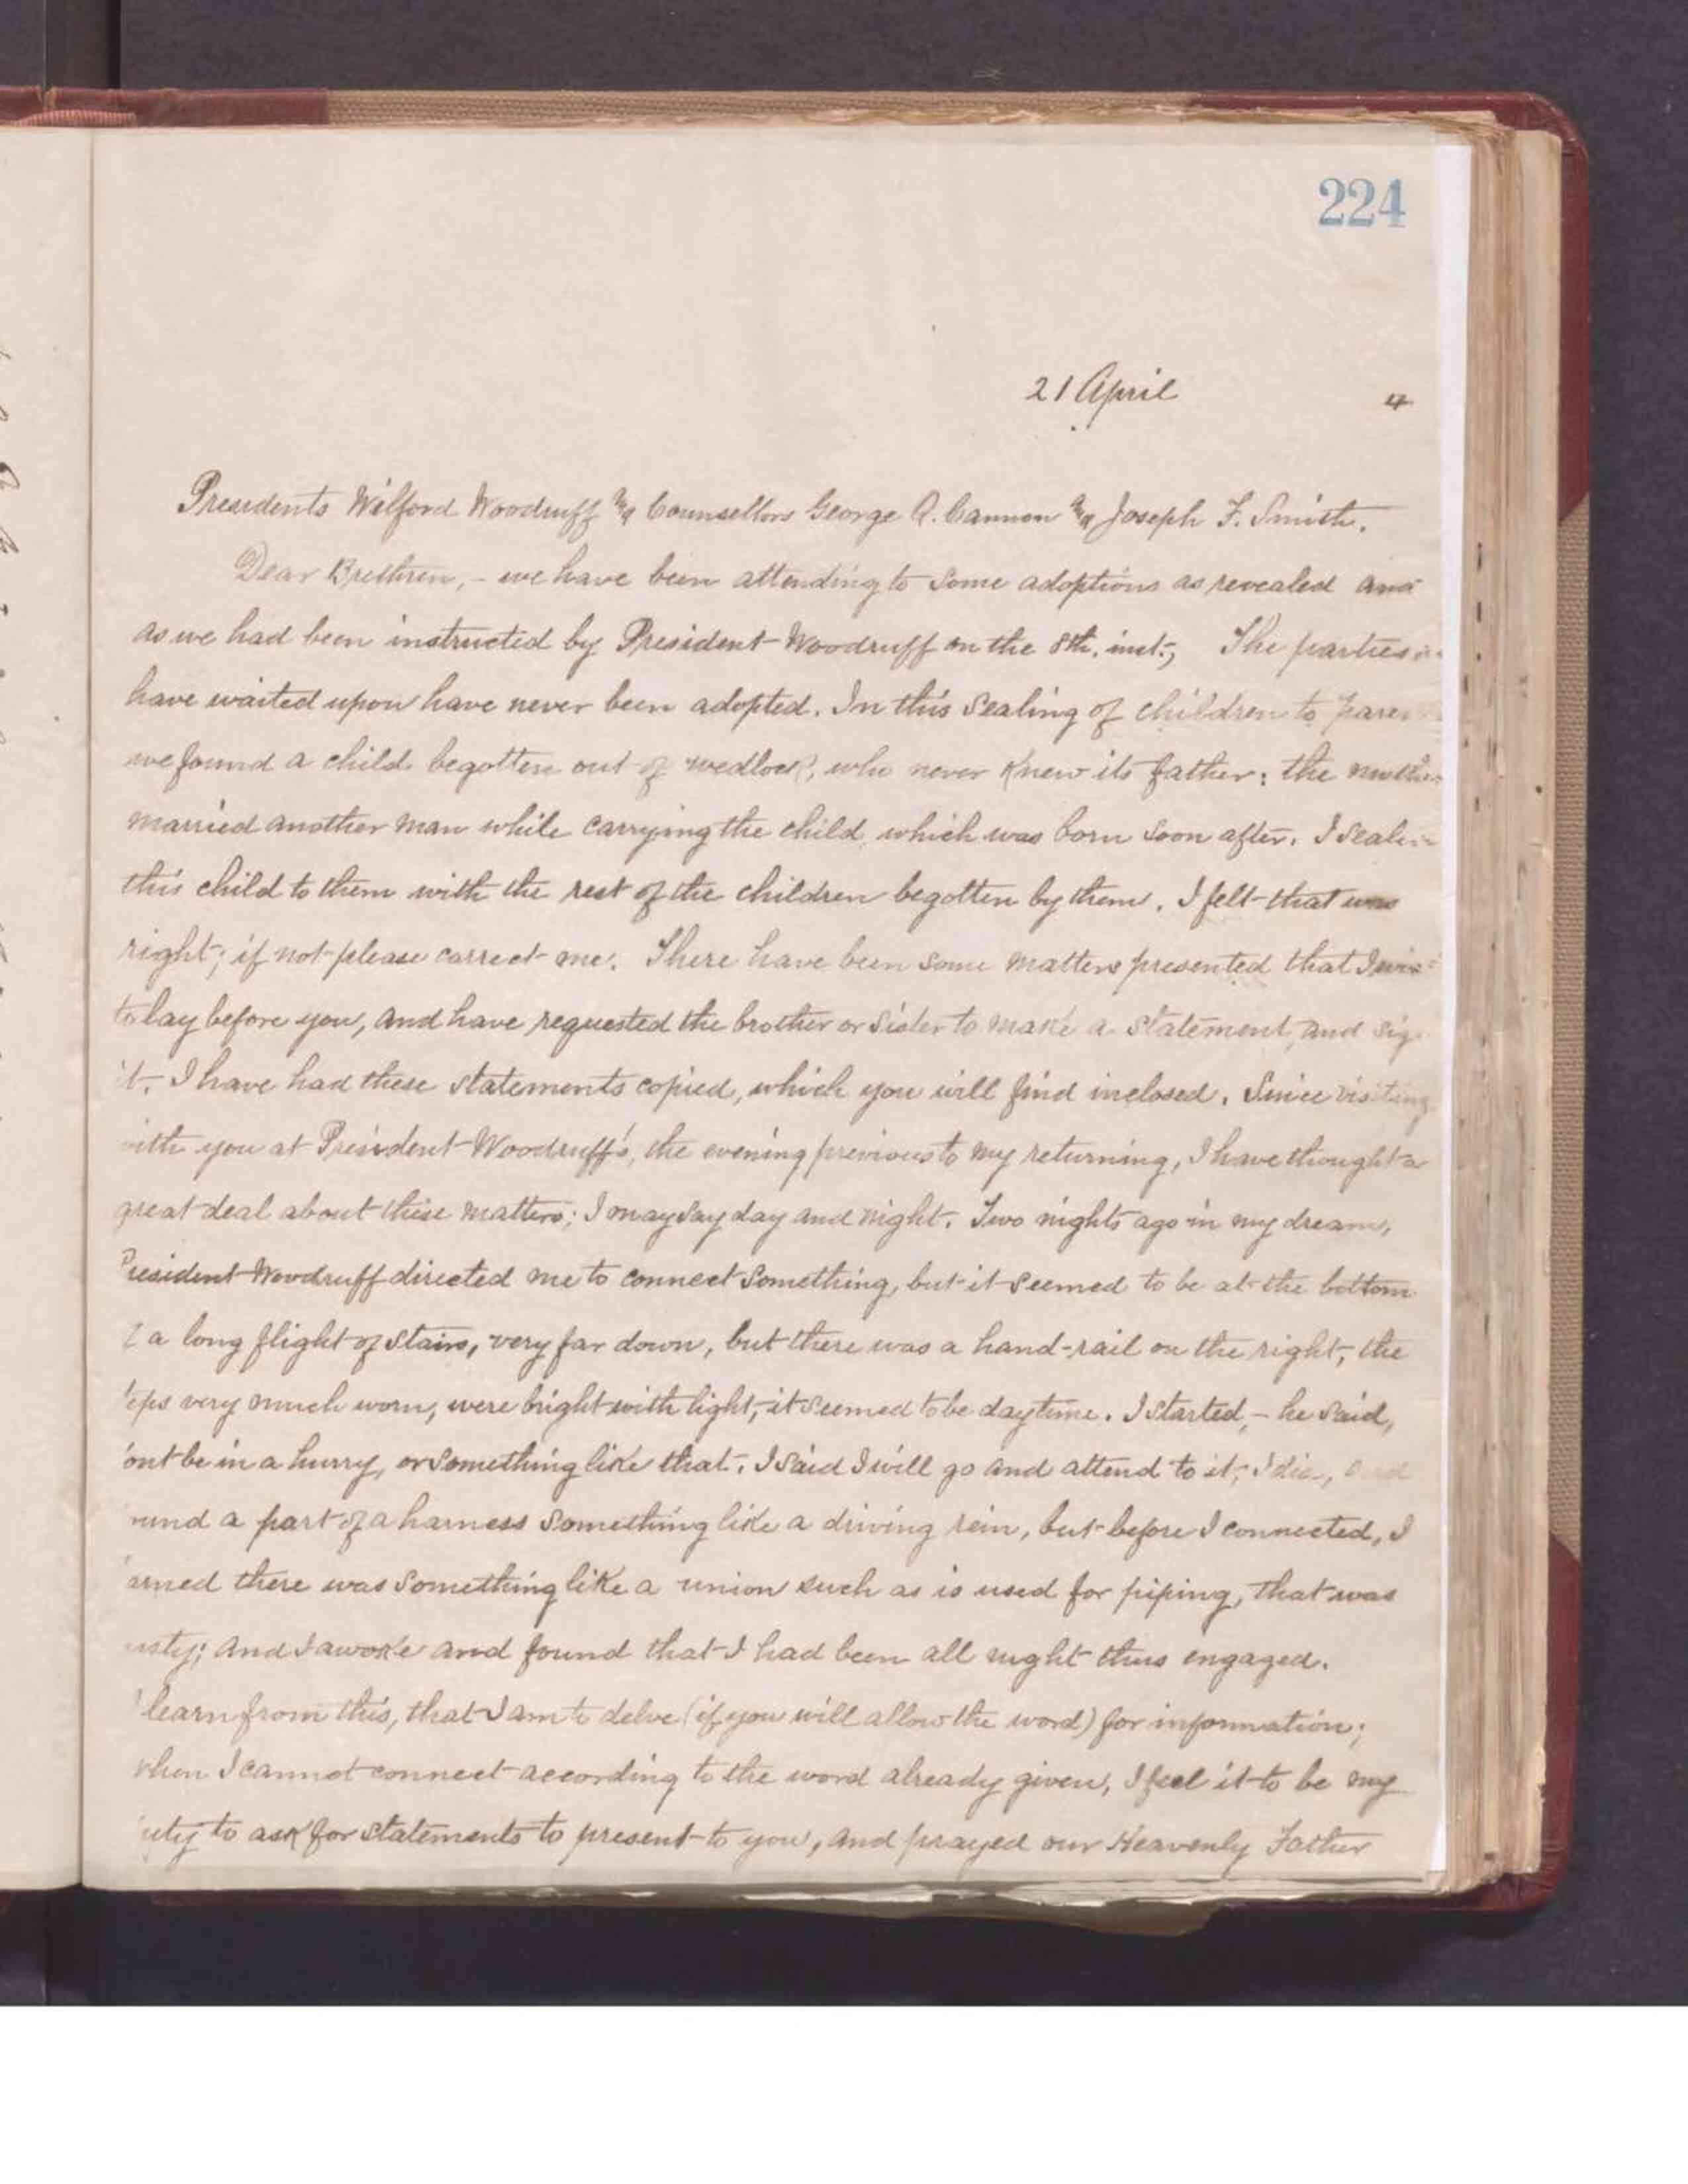 224
21 April 4
Presidents Wilford Woodruff & Counsellors George Q. Cannon & Joseph F. Smith.
Dear Brethren, - we have been attending to some adoptions as revealed and
as we had been instructed by President Woodruff on the 8th. inst., The parties
have waited upon have never been adopted. In this sealing of children to paren
we found a child begotten out of wedlock, who never knew its father: the mother
married another man while carrying the child, which was born soon after. I seale
this child to them with the rest of the children begotten by them. I felt that was
right; if not please correct me. There have been some matters presented that I wis
to lay before you, and have requested the brother or sister to make a statement, and sig
it. I have had these statements copied, which you will find inclosed. Since visiting
ith you at President Woodruff's, the evening previous to my returning, I have thought a
great deal about these matters; I may say day and night. Two nights ago in my dream,
President Woodruff directed me to connect something, but it seemed to be at the bottom
f a long flight of stairs, very far down, but there was a hand-rail on the right, the
eps very much worn, were bright with light, it seemed to be daytime. I started, - he said,
ont be in a hurry, or something like that. I said I will go and attend to it; I did, and
und a part of a harness something like a driving rein, but before I connected, I
arned there was something like a union such as is used for piping, that was
usty; and I awoke and found that I had been all night thus engaged.
I learn from this, that I am to delve (if you will allow the word) for information;
when I cannot connect according to the word already given, I feel it to be my
uty to ask for statements to present to you, and prayed our Heavenly Father